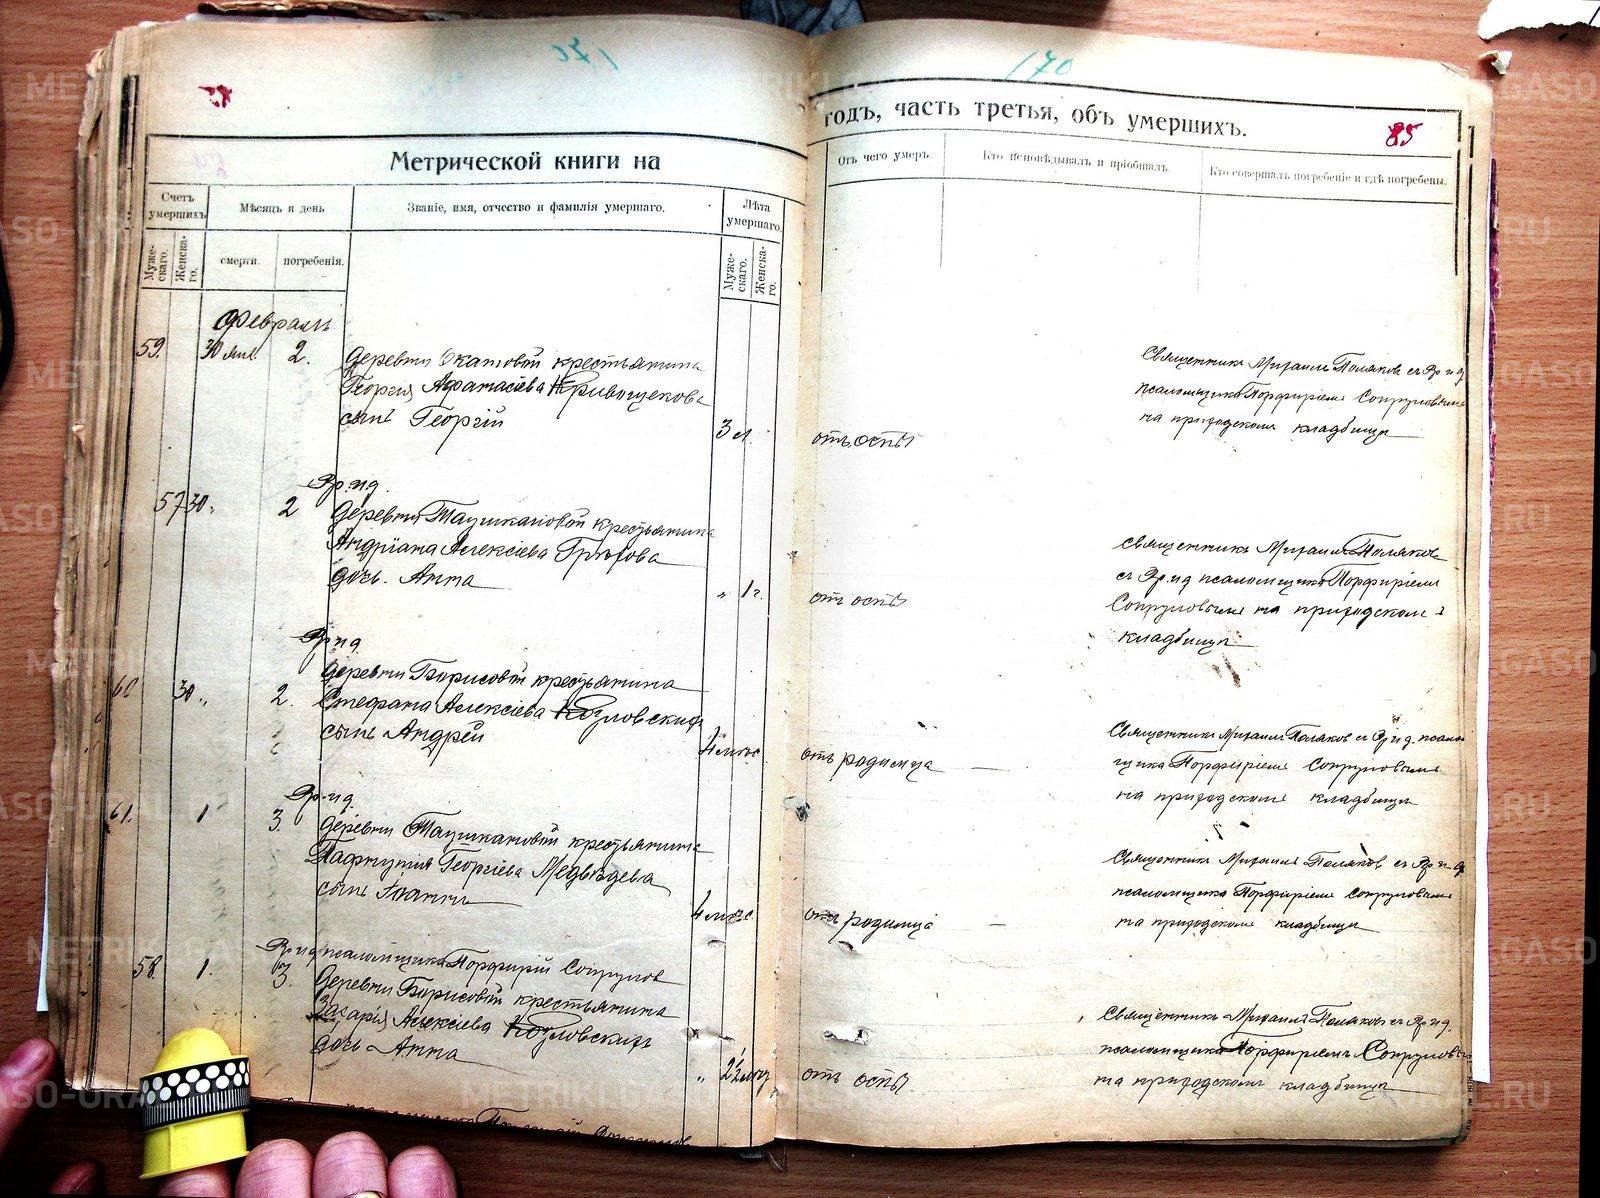 170
85
Метрической книги на
годъ, часть третья, объ умершихъ.
Счетъ умершихъ
Мѣсяцъ и день
Званіе, имя, отчество и фамилія умершаго.
Лѣта умершаго.
Отъ чего умеръ.
Кто исповѣдывалъ и пріобщалъ.
Кто совершалъ погребеніе и гдѣ погребены.
Мужескаго.
Женскаго.
смерти.
погребенія.
Мужескаго.
Женскаго.
Февраль
59. 30 янв. 2.
Деревни Окатовой крестьянина
Георгія Афанасіева Кривощекова
сынъ Георгій
3 л.
отъ оспы
Священникъ Михаилъ Поляковъ съ Вр. и. д.
псаломщика Порфиріемъ Сопруновымъ
на приходскомъ кладбищѣ
Вр. и. д.
57 30 „ 2
Деревни Таушкановой крестьянина
Андріана Алексіева Грюхова
дочь Анна
„ 1 г.
отъ оспы
Священникъ Михаилъ Поляковъ
съ Вр. и д псаломщика Порфиріемъ
Сопруновымъ на приходскомъ
кладбищѣ
Вр. и д.
60 30 „ 2.
Деревни Борисовой крестьянина
Стефана Алексіева Козловскихъ
сынъ Андрей
4 мѣс.
отъ родимца
Священникъ Михаилъ Поляковъ съ Вр. и д. псалом
щика Порфиріемъ Сопруновымъ
на приходскомъ кладбищѣ
Вр. и д.
61. 1 3.
Деревни Таушкановой крестьянина
Пафнутія Георгіева Медвѣдева
сынъ Іоаннъ
4 мѣс.
отъ родимца
Священникъ Михаилъ Поляковъ съ Вр. и. д.
псаломщика Порфиріемъ Сопруновымъ
на приходскомъ кладбищѣ
Вр. и д псаломщика Порфирій Сопруновъ
58. 1. 3.
Деревни Борисовой крестьянина
Захарія Алексіева Козловскихъ
дочь Анна
„ 2½ мѣс
отъ оспы
Священникъ Михаилъ Поляковъ съ Вр. и д.
псаломщика Порфиріемъ Сопруновымъ
на приходскомъ кладбищѣ